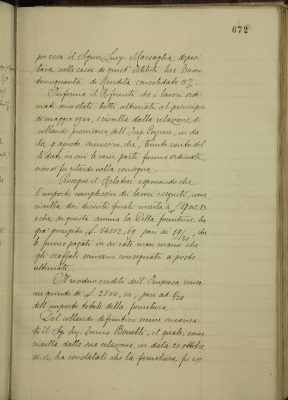 672
per essa il Signor Luigi Marsaglia, deposi-
tava nelle casse di quest'Istituto Lire Due
di Rendita consolidato 5%.
Informa il Riferente che i lavori ordi-
nati, sono stati tutti ultimati al principio
di maggio 1920, e risulta dalla relazione di
collaudo provvisorio dell'Ing. Peyron, in da-
ta 9 agosto che, tenuto conto del-
le date in cui le varie parti furono ordinate,
non vi fu ritardo nella consegna.
Prosegue il Relatore esponendo che
l'importo complessivo dei lavori eseguiti, come
risulta dai decanti finali monta a L.
e che su questa somma la Ditta fornitrice ha
già percepito L. 54002,69 pari ai 19/20 che
le furono pagati in sei rate man mano che
gli scaffali venivano consegnati a posto
ultimati.
Il residuo credito dell'Impresa rima-
ne quindi di L. pari ad 1/20
dell'importo totale della fornitura.
Del collaudo definitivo venne incarica-
to il Sig. Ing. Ennio Bonelli, il quale, come
risulta dalla sua relazione in data 20 ottobre
u.s., ha constatato che la fornitura fu ese-